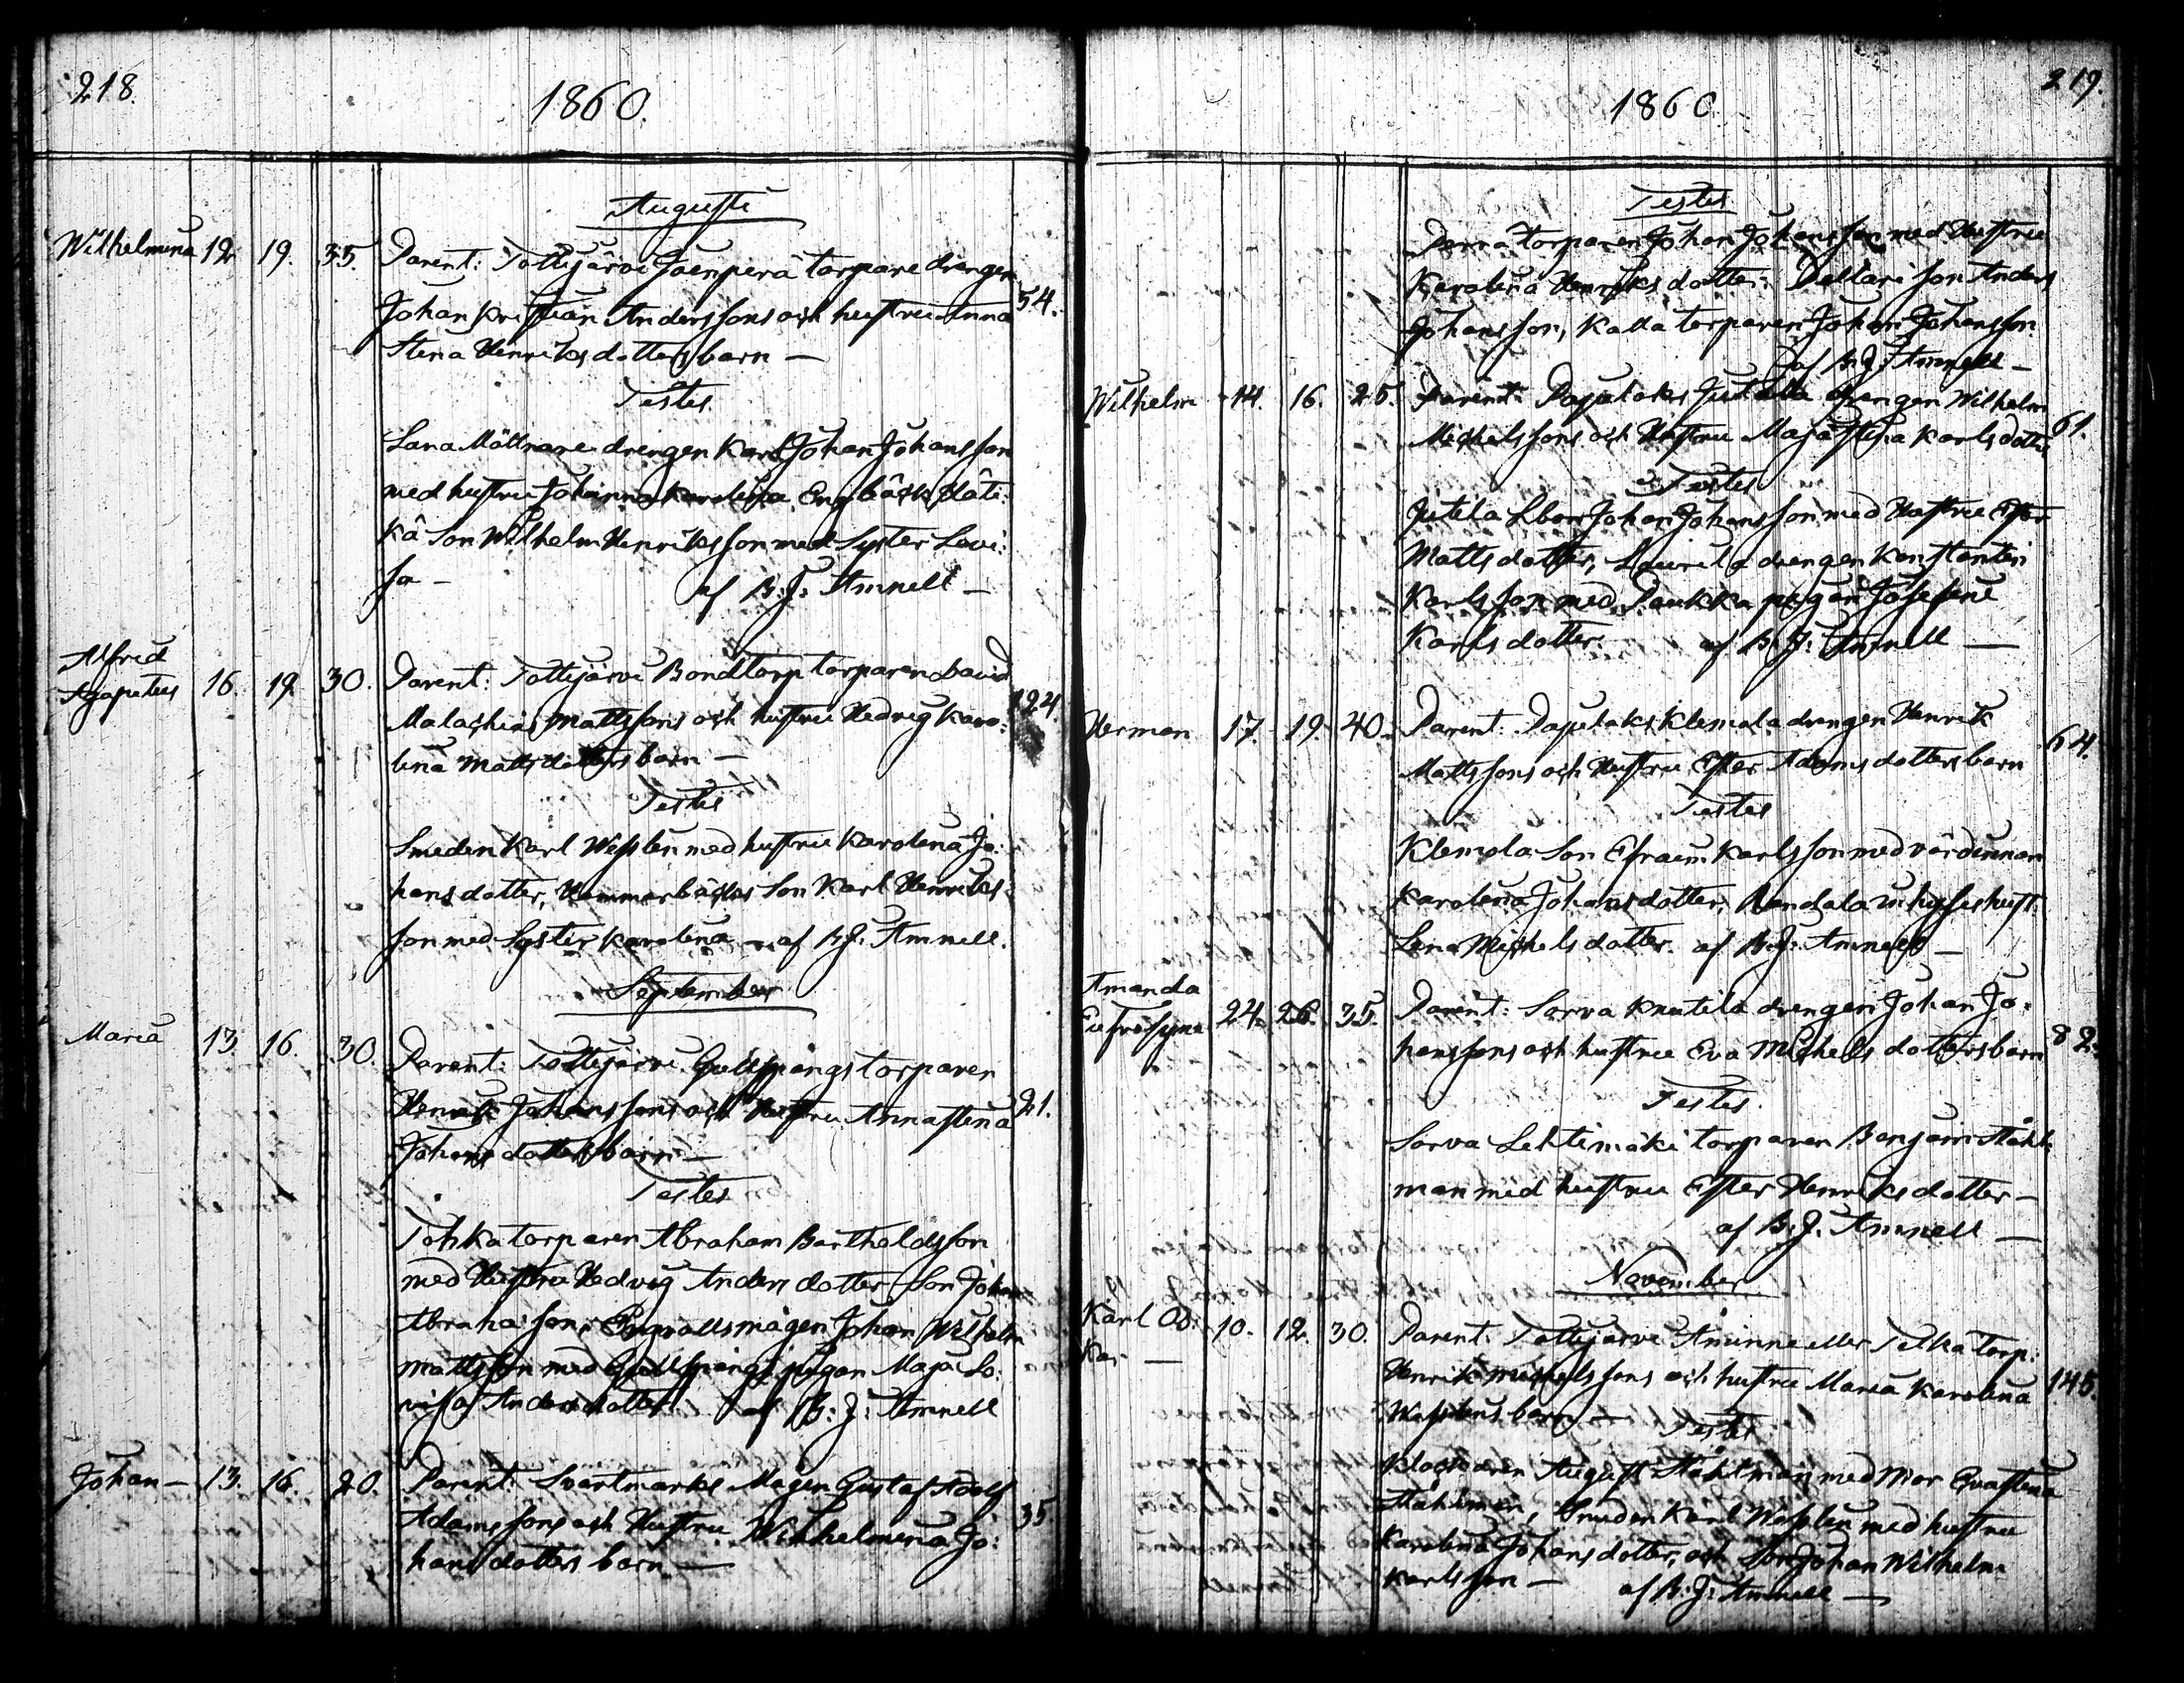 218.
1860.
Augusti
Wilhelmina 12. 19. 35. Parent: Tottijärvi Joenperä torpare drengen
Johan Kristian Anderssons och hustru Anna 54.
Stina Henriksdotters barn —
Testes
Lana Möllnare drengen Karl Johan Johansson
med hustru Johanna Karolina Engbäck,
Kå Son Wilhelm Henriksson med Syster Lovi:
sa — af B. J. Amnell —
Alfred
Agapetus 16. 19. 30. Parent: Tottijärvi Bondtorp torparen David
Malachias Mattssons och hustru Hedvig Karo: 124.
lina Mattsdotters barn —
Testes
Smeden Karl Wesslen med hustru Karolina Jo:
hansdotter, Hammarbackas Son Karl Henriks:
son med Syster Karolina — af B. J. Amnell.
September
Maria 13. 16. 30. Parent: Tottijärvi Gullspångs torparen
Henrik Johanssons och Hustru Annastina 21.
Johansdotters barn —
Testes
Tohka torparen Abraham Bartholdsson
med Hustru Hedvig Andersdotter Son Johan
Abrahasson, mågen Johan Wilhelm
Mattsson med Gullspångs pigan Maja Lo:
visa Andersdotter af B. J. Amnell
Johan — 13. 16. 20. Parent: Svartmarks Mågen Gustaf Adolf
Adamssons och Hustru Wilhelmina Jo: 35.
hansdotters barn —
219.
1860
Testes
Perrä torparen Johan Johansson med Hustru
Karolina Henriksdotter: Dellari son Anders
Johansson, Kalla torparen Johan Johansson
af B. J. Amnell —
Wilhelm 14. 16. 25. Parent: Pajulaks Jutila drengen Wilhelm
Michelssons och Hustru Maja Stina Karlsdotter 61.
Testes
Jutila Lbon Johan Johansson med Hustru Ester
Mattsdotter, Laurila drengen Konstantin
Karlsson med Paukka pigan Josefina
Karlsdotter. af B. J. Amnell —
Herman 17. 19. 40. Parent: Pajulaks Klemola drengen Henrik
Mattssons och Hustru Ester Adamsdotters barn 64.
Testes
Klemola Son Efraim Karlsson med värdinnan
Karolina Johansdotter, inhyses hust:
Lena Michelsdotter. af B. J. Amnell —
Amanda
Eufrosyne 24. 26. 35. Parent: Sorva Knutila drengen Johan Jo:
hanssons och hustru Eva Michelsdotters barn 82.
Testes.
Sorva Lehtimäki torparen Benjam Ståhl:
man med hustru Ester Henriksdotter —
af B. J. Amnell —
November
Karl Os:
kar — 10. 12. 30. Parent: Tottijärvi Åminne eller Telkä torp:
Henrik Michelssons och hustru Maria Karolina 145.
Wesslens barn — Testes
Klockaren August Ståhlman med Mor Evastina
Ståhlman, Smeden Karl Wesslen med hustru
Karolina Johansdotter, och Son Johan Wilhelm
Karlsson — af B. J. Amnell —